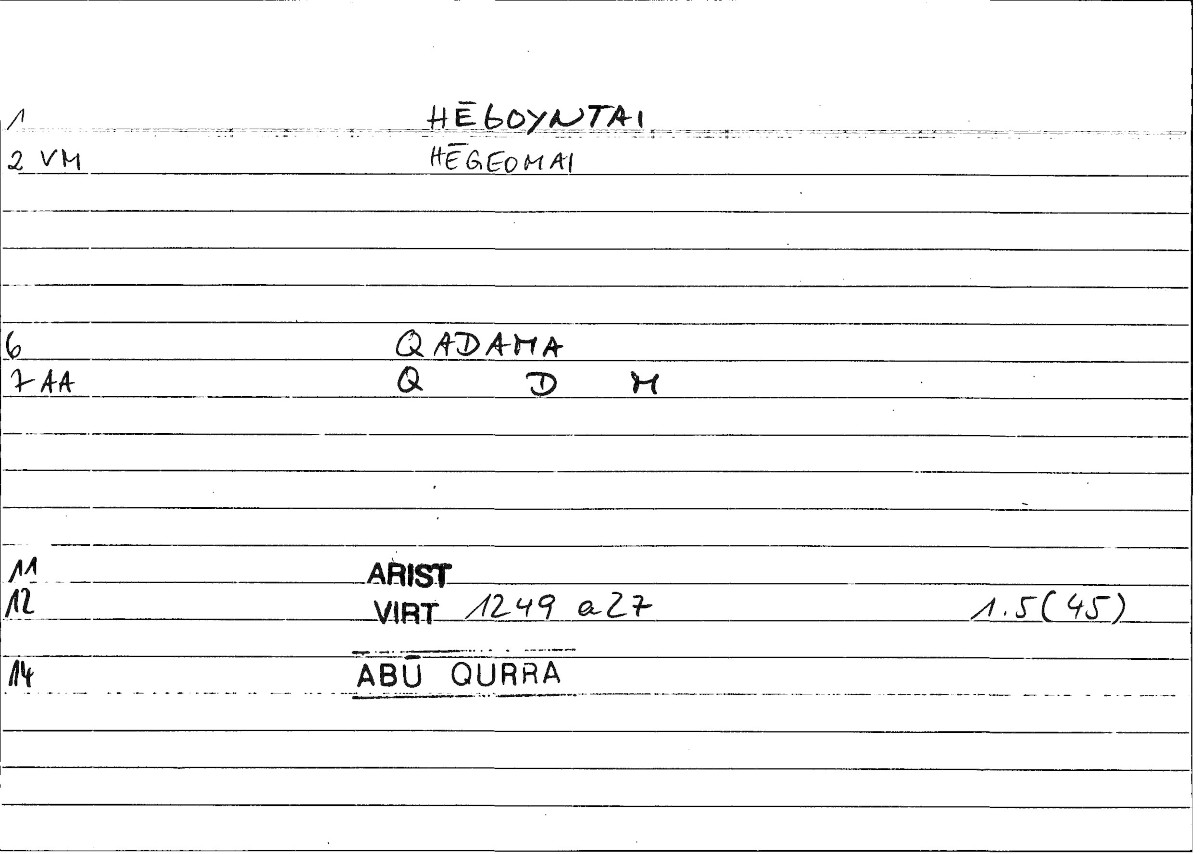 1 HĒGOYNTAI
2 VM HĒGEOMAI
6 QADAMA
7 AA Q D M
11 ARIST
12 VIRT 1249 a27 1.5(45)
14 ABŪ QURRA